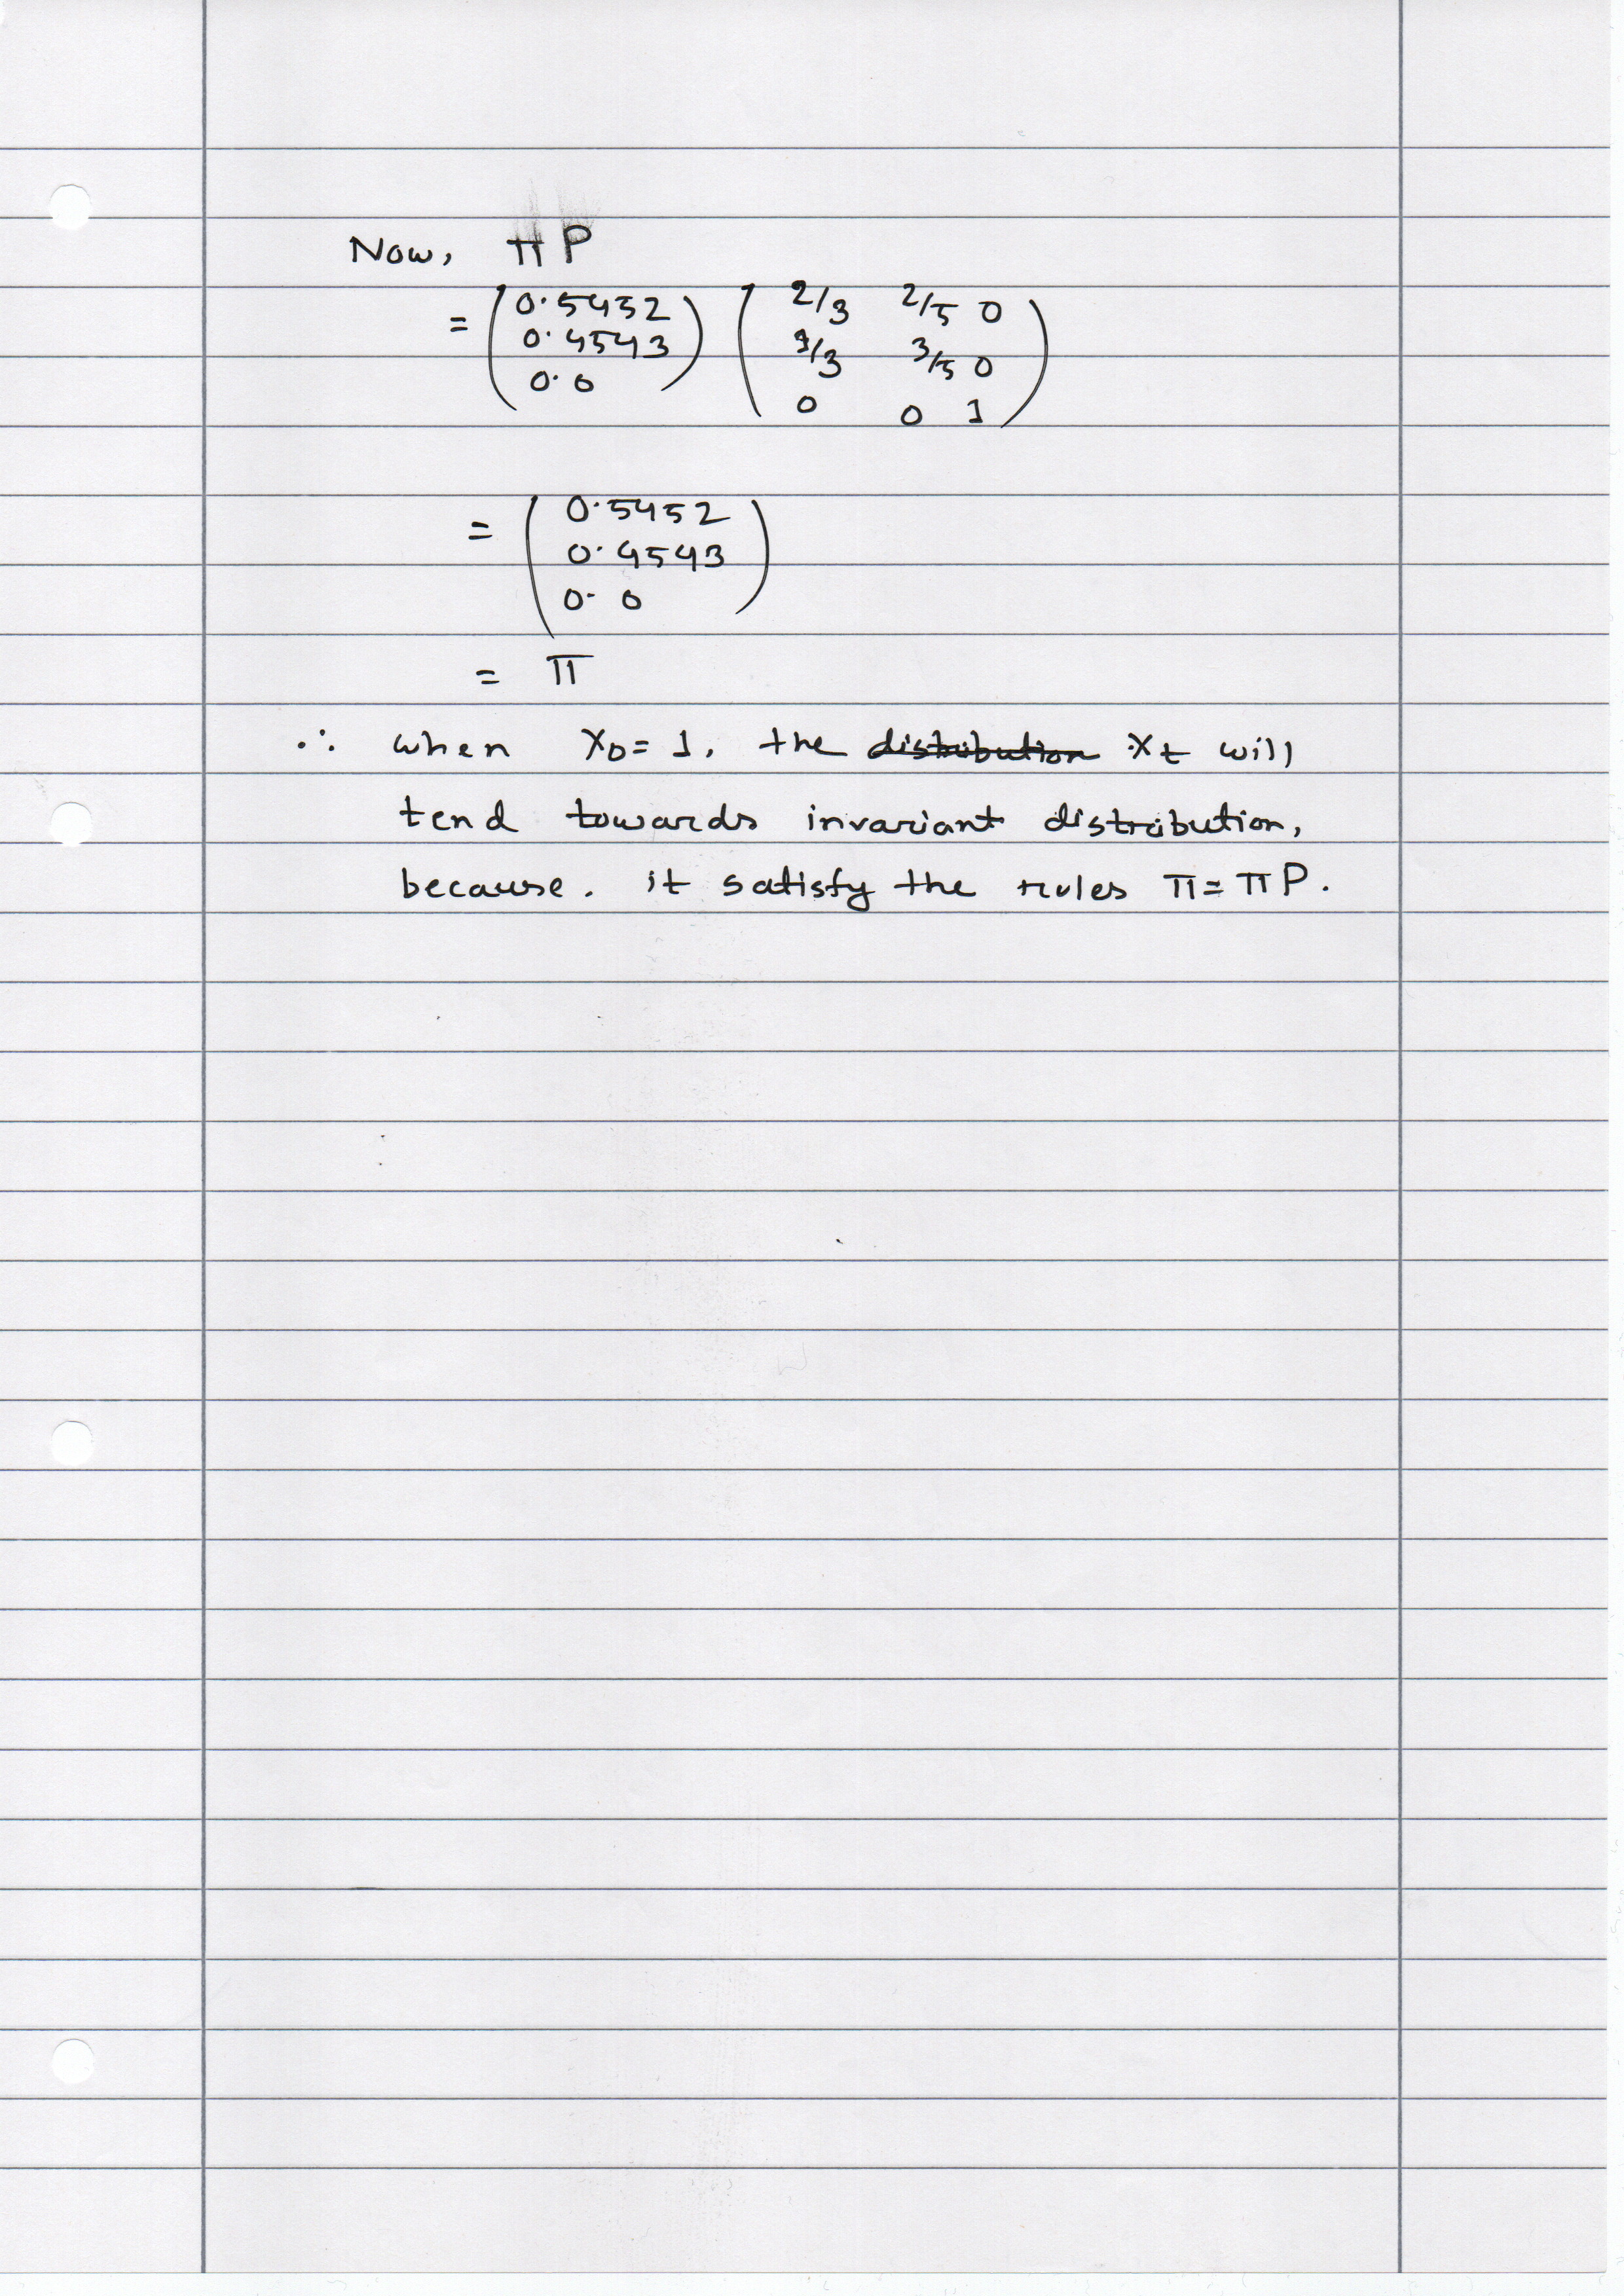 Now, π P
= (0.5452 0.4543 0.0) (2/3 2/5 0 1/3 3/5 0 0 0 1)
= (0.5452 0.4543 0.0)
= π
∴ when X₀ = 1, the distribution Xt will
tend towards invariant distribution,
because. it satisfy the rules π = π P.